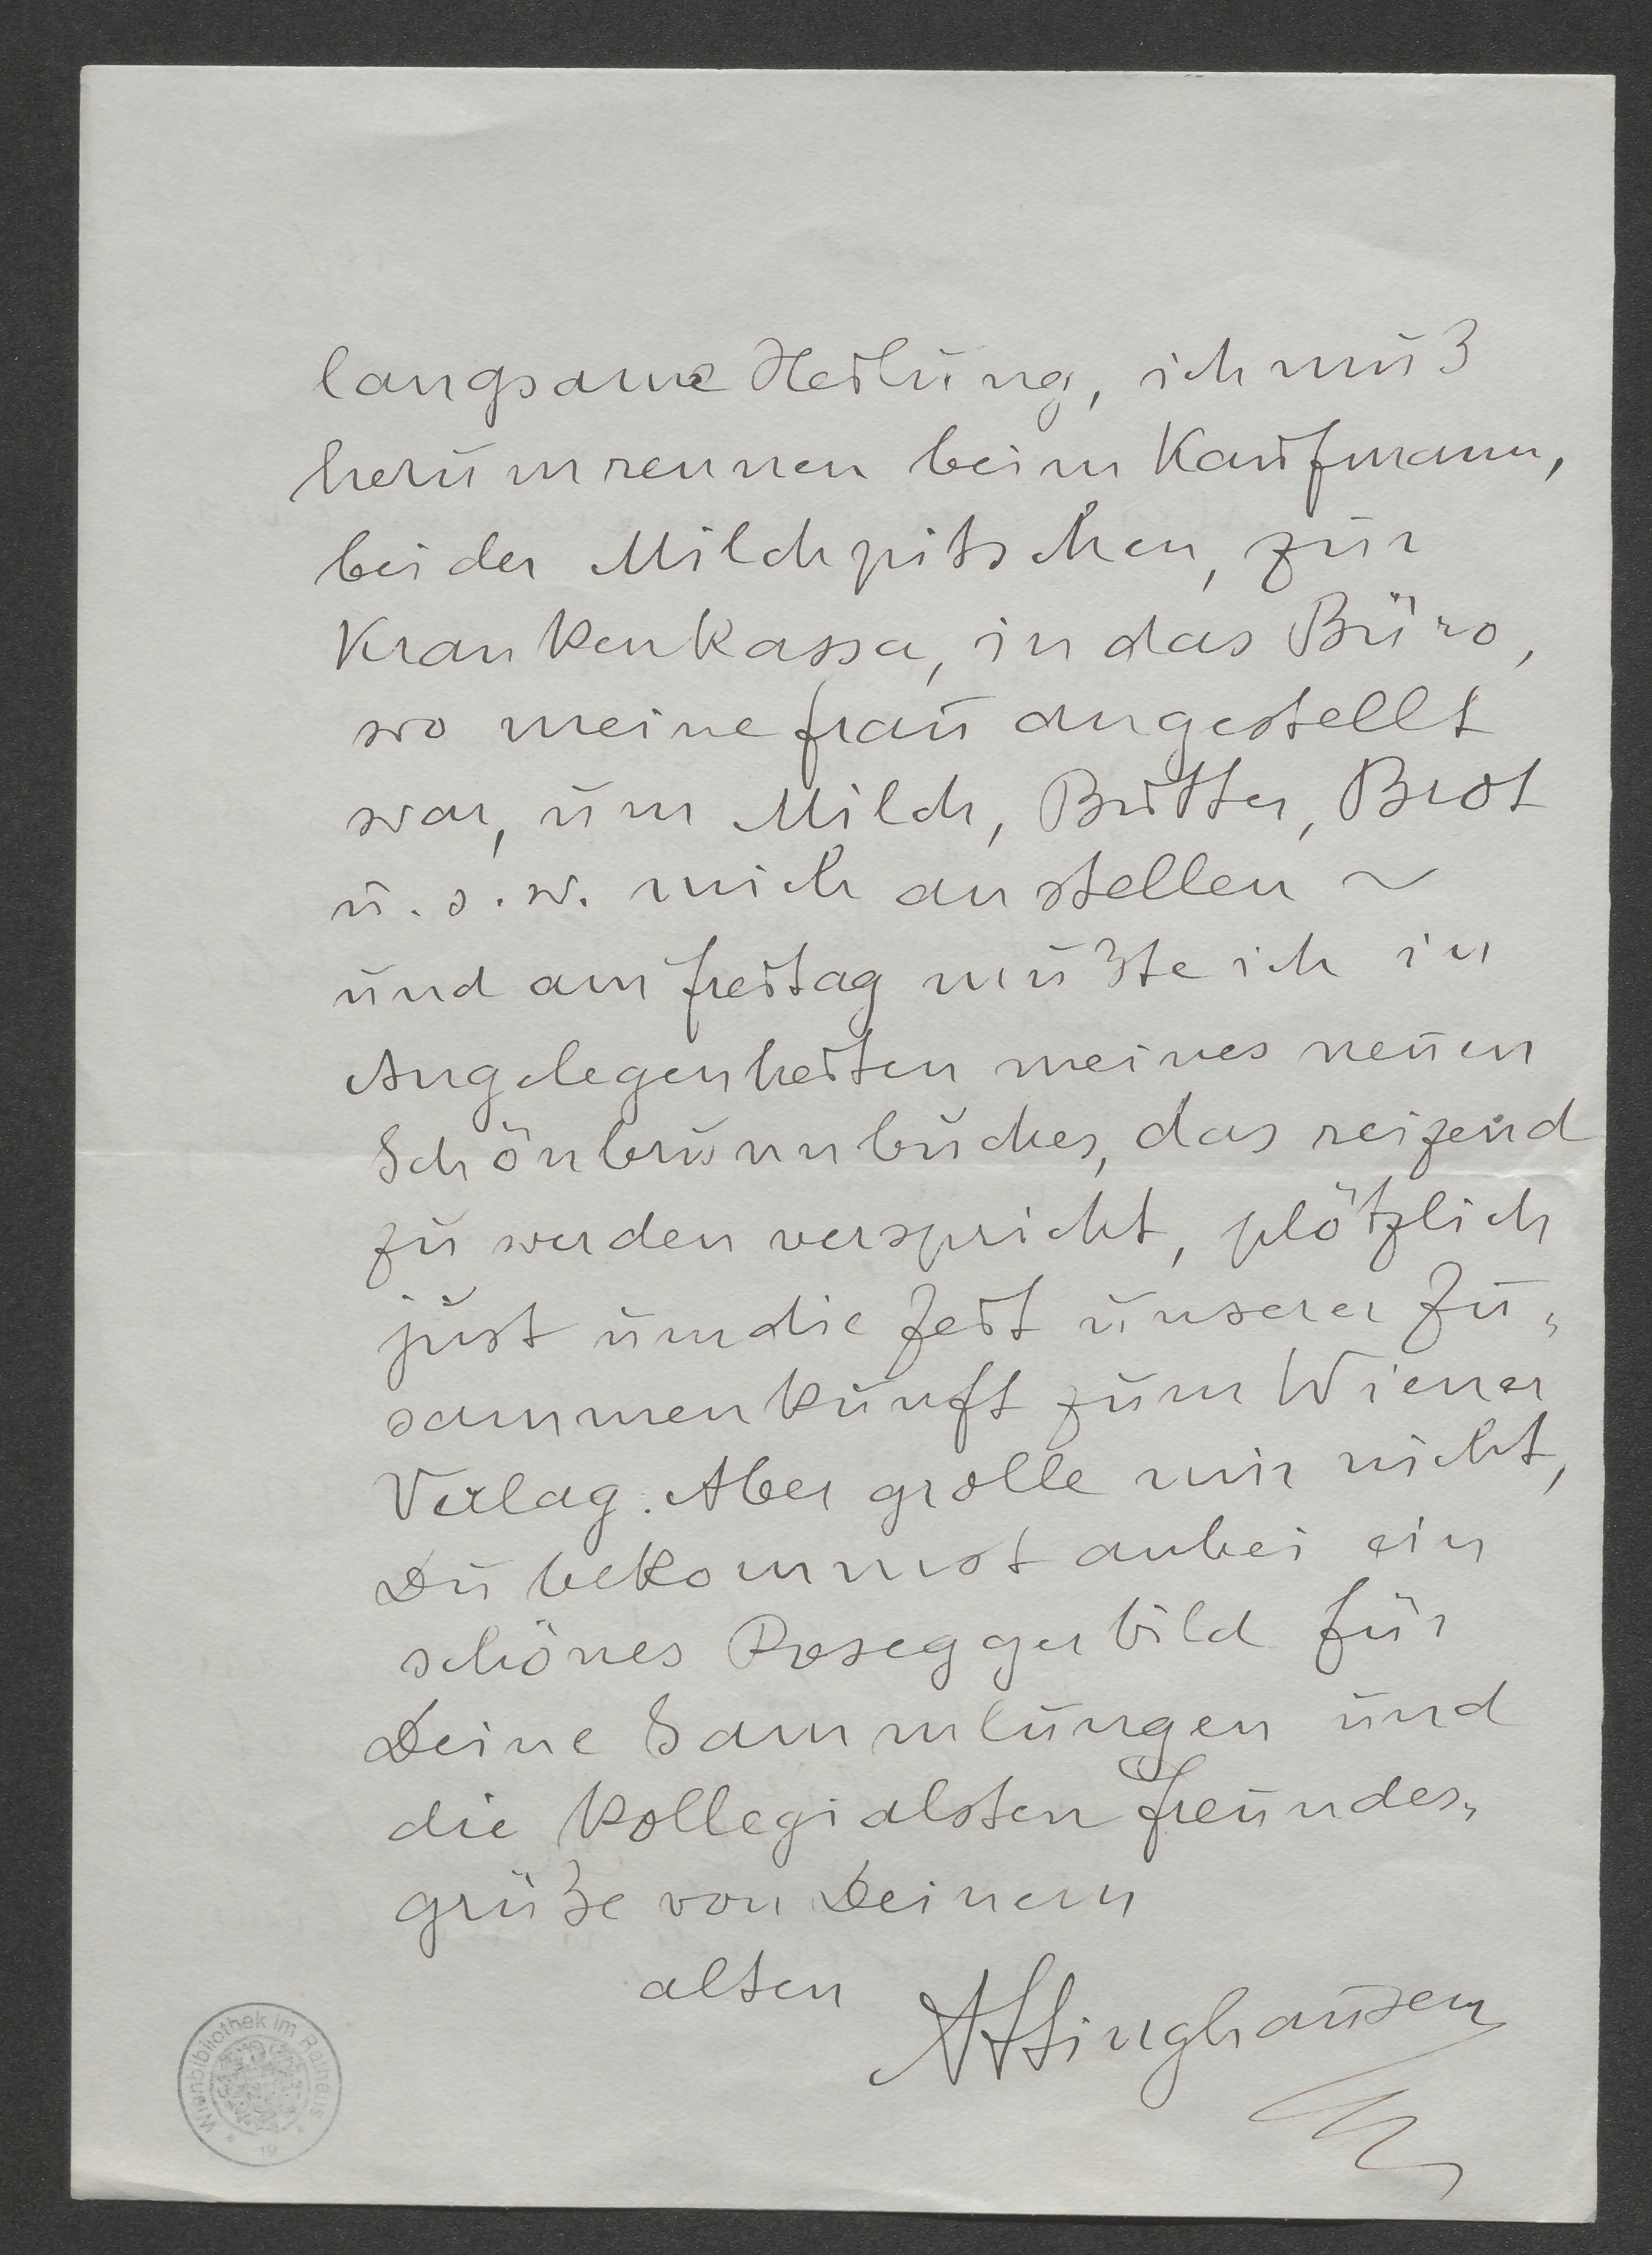 langsame Heilung, ich muß
herumrennen beim Kaufmann,
bei der Milchpitschen, zur
Krankenkassa, in das Büro,
wo meine Frau angestellt
war, um Milch, Butter, Brot
u. s. w. mich anstellen ~
und am Freitag mußte ich in
Angelegenheiten meines neuen
Schönbrunnbuches, das reizend
zu werden verspricht, plötzlich
just um die Zeit unserer Zu„
sammenkunft zum Wiener
Verlag. Aber grolle mir nicht,
Du bekommst anbei ein
schönes Roseggerbild für
Deine Sammlungen und
die kollegialsten Freundes„
grüße von Deinem
alten
Wienbibliothek im Rathaus
19